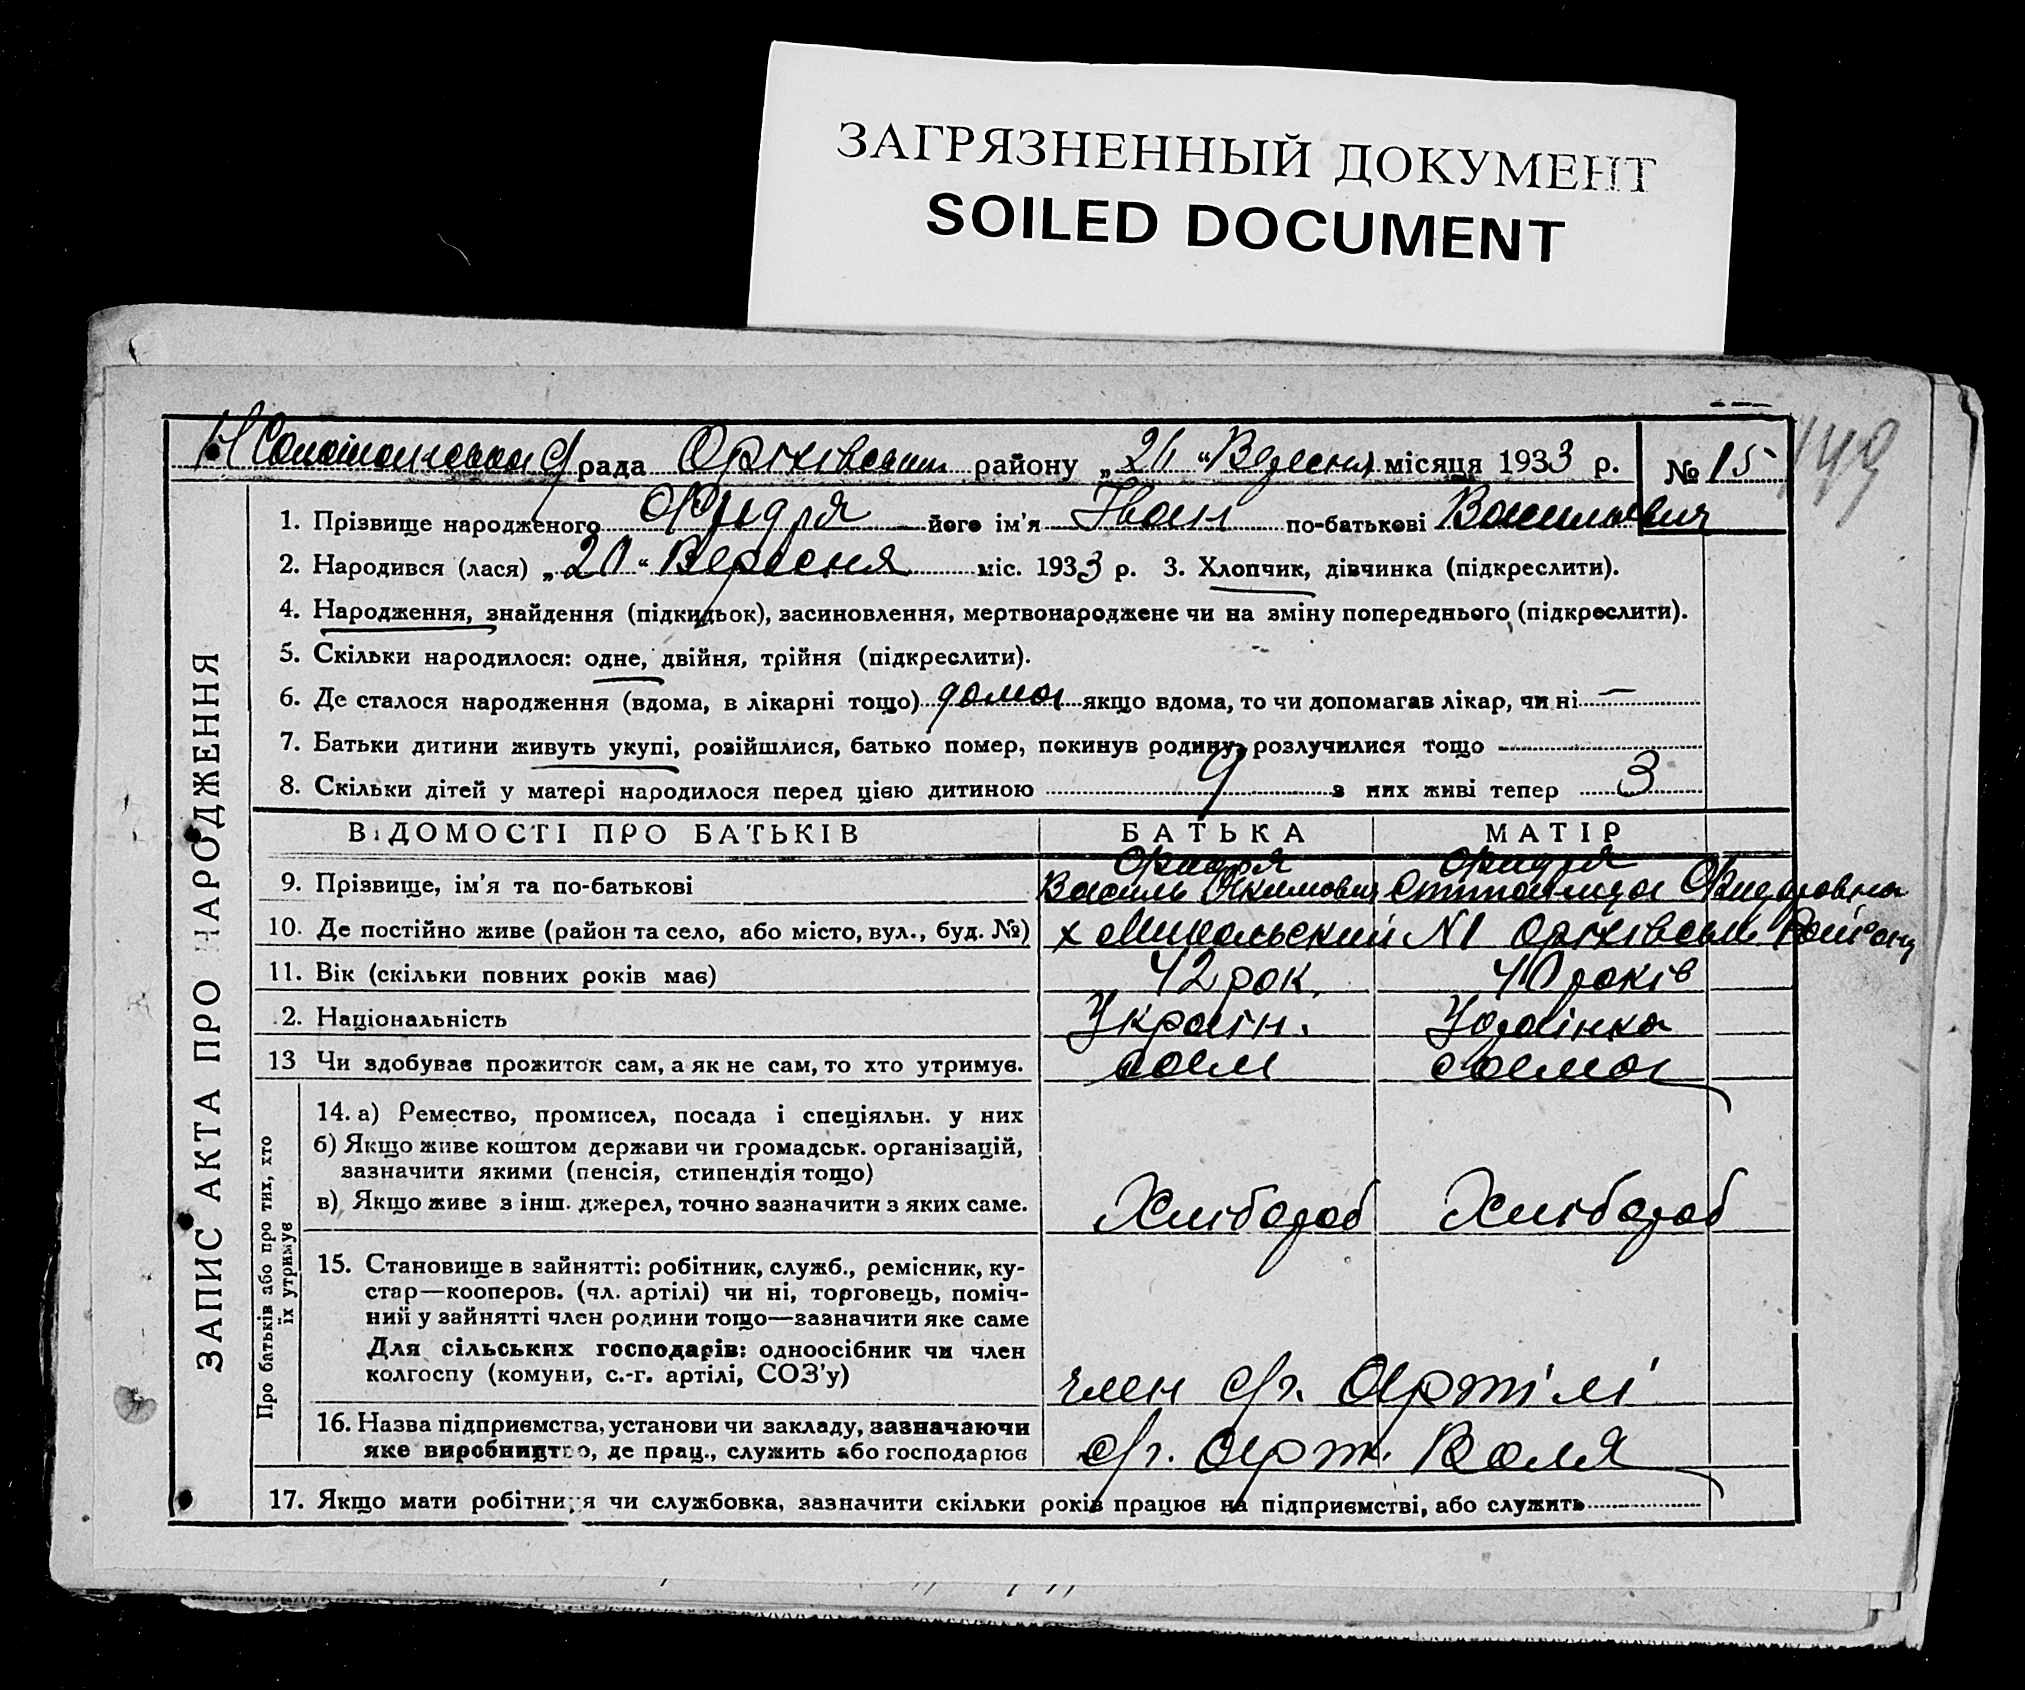 ЗАГРЯЗНЕННЫЙ ДОКУМЕНТ
SOILED DOCUMENT
149
рада Оріхівськ. району „21“ Вересня місяця 1933 р. № 15
ЗАПИС АКТА ПРО НАРОДЖЕННЯ
1. Прізвище народженого його ім'я Іван по-батькові Васильевич
2. Народився (лася) „20“ Вересня міс. 1933 р. 3. Хлопчик, дівчинка (підкреслити).
4. Народження, знайдення (підкидьок), засиновлення, мертвонароджене чи на зміну попереднього (підкреслити).
5. Скільки народилося: одне, двійня, трійня (підкреслити).
6. Де сталося народження (вдома, в лікарні тощо) дома якщо вдома, то чи допомагав лікар, чи ні —
7. Батьки дитини живуть укупі, розійшлися, батько помер, покинув родину, розлучилися тощо
8. Скільки дітей у матері народилося перед цією дитиною з них живі тепер 3
ВІДОМОСТІ ПРО БАТЬКІВ БАТЬКА МАТІР
9. Прізвище, ім'я та по-батькові Василь Якимович
10. Де постійно живе (район та село, або місто, вул., буд. №) х Микольский N1 Оріхівськ. району
11. Вік (скільки повних років має) 42 рок. 40 років
2. Національність Украін. Украінка
13 Чи здобуває прожиток сам, а як не сам, то хто утримує. сам сама
Про батьків або про тих, хто їх утримує
14. а) Ремество, промисел, посада і спеціяльн. у них
б) Якщо живе коштом держави чи громадськ. організацій,
зазначити якими (пенсія, стипендія тощо)
в) Якщо живе з інш. джерел, точно зазначити з яких саме. Хлібороб Хлібороб
15. Становище в зайнятті: робітник, служб., ремісник, ку-
стар—кооперов. (чл. артілі) чи ні, торговець, поміч-
ний у зайнятті член родини тощо—зазначити яке саме
Для сільських господарів: одноосібник чи член
колгоспу (комуни, с.-г. артілі, СОЗ'у) член с/г. Артілі
16. Назва підприємства, установи чи закладу, зазначаючи
яке виробництво, де прац., служить або господарює с/г. арт. Воля
17. Якщо мати робітниця чи службовка, зазначити скільки років працює на підприємстві, або служить